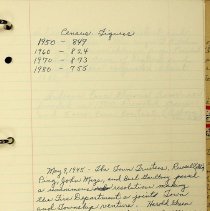 Census Figures
1950 - 847
1960 - 824
1970 - 873
1980 - 755
May 9, 1945 - The Town Trustees, Russell
Ping, John Mays, and Earl Gentry passed
a resolution making
the Fire Department a joint Town
and Township venture. Harold Green